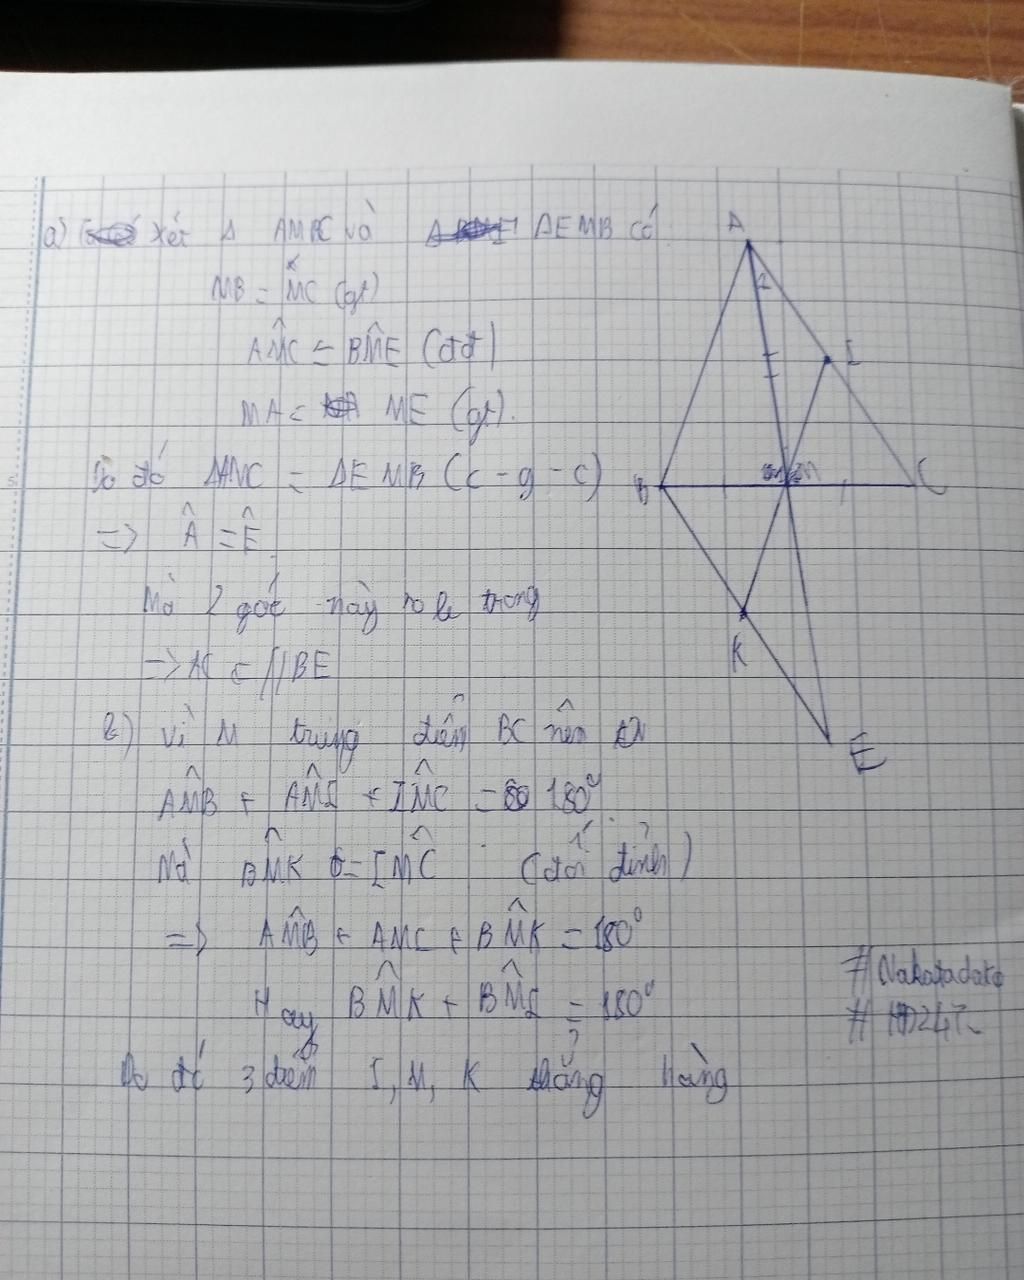 a) Xét Δ AMC và ΔEMB có
MB = MC (gt)
AM̂C = BM̂E (đđ)
MA = ME (gt).
Do đó ΔAMC = ΔEMB (c - g - c)
=> Â = Ê
Mà 2 góc này so le trong
=> AC // BE
b) Vì M trung điểm BC nên
AM̂B + AM̂I + IM̂C = 180°
Mà BM̂K = IM̂C (đối đỉnh)
=> AM̂B + AMI + BM̂K = 180°
Hay BM̂K + BM̂I = 180°
Do đó 3 điểm I, M, K thẳng hàng
A
I
B
M
C
K
E